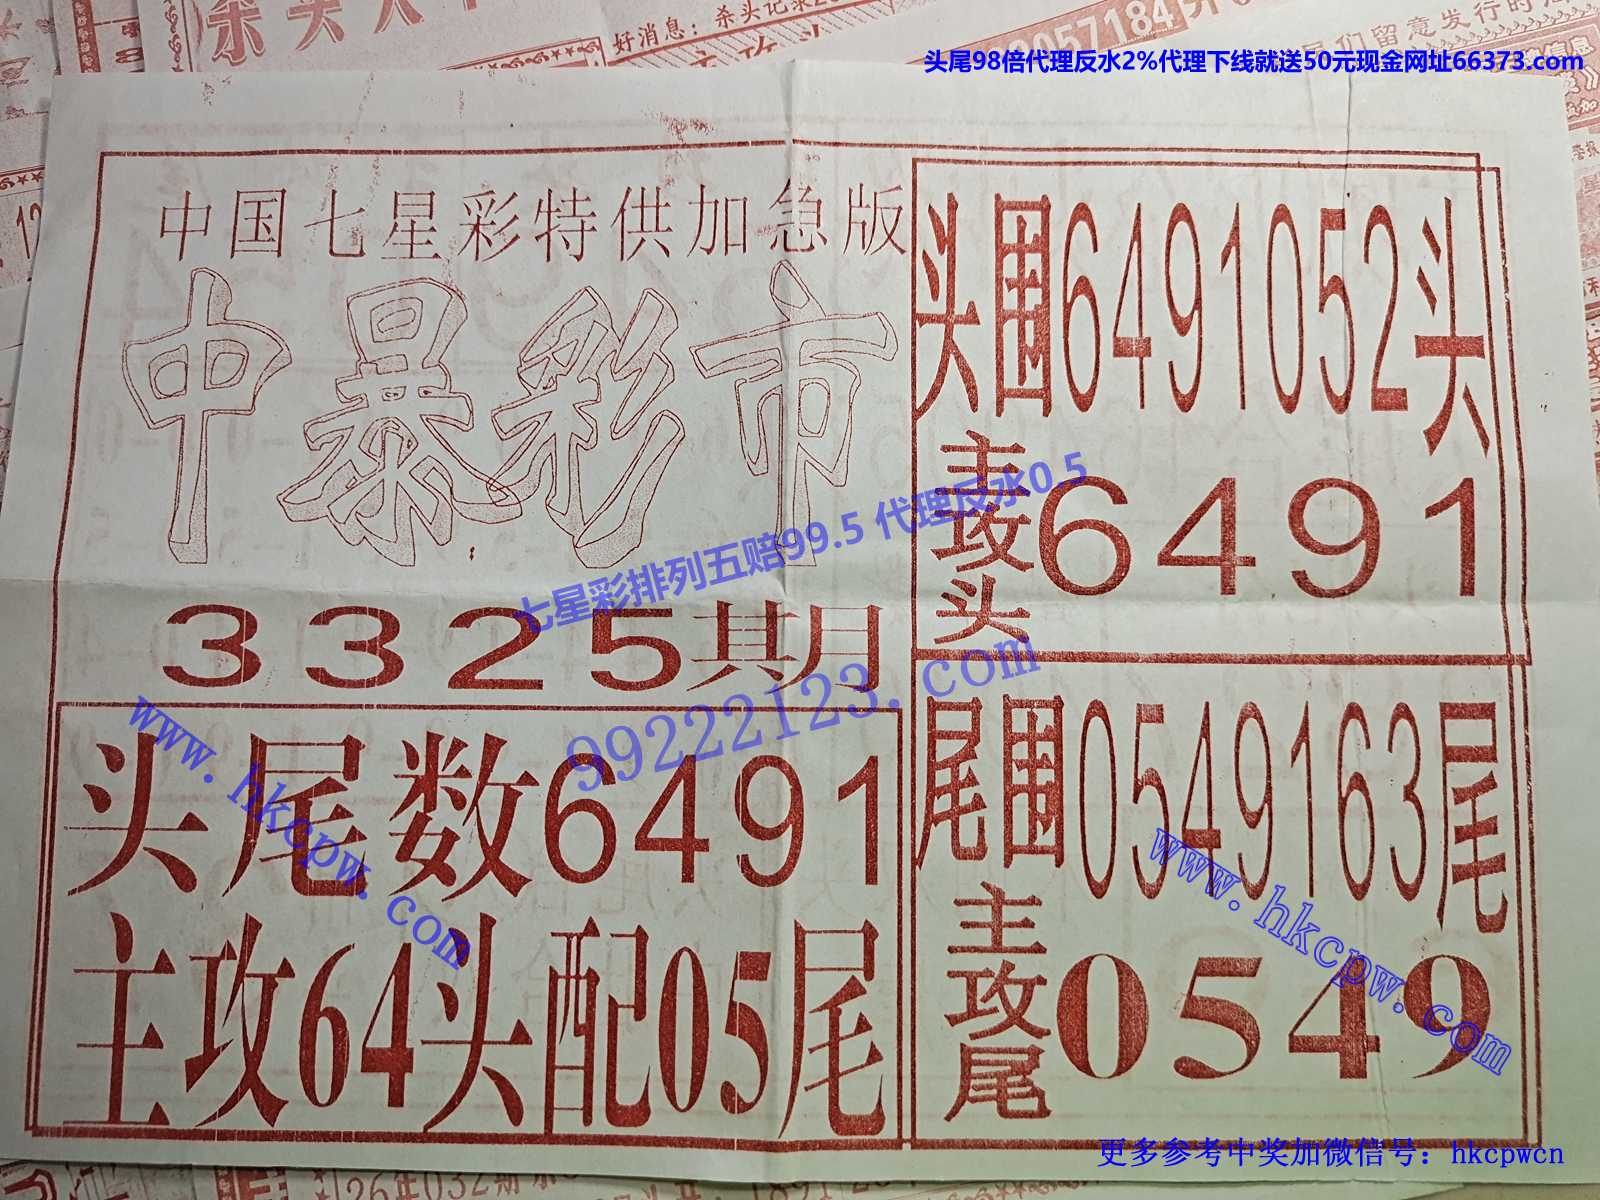 好消息：杀头记录2
057184
们留意发行时
头尾98倍代理反水2%代理下线就送50元现金网址66373.com
中国七星彩特供加急版
中暴彩市
3325期
头尾数6491
主攻64头配05尾
头围6491052头
主攻头6491
尾围0549163尾
主攻尾0549
七星彩排列五赔99.5 代理反水0.5
99222123.com
www.hkcpw.com
www.hkcpw.com
更多参考中奖加微信号：hkcpwcn